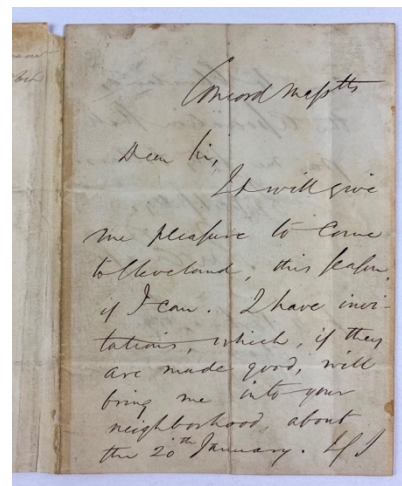 Concord Masstts
Dear Sir,
It will give
me pleasure to come
to Cleveland, this season,
if I can. I have invi-
tations, which, if they
are made good, will
bring me into your
neighborhood, about
the 20th January. If I